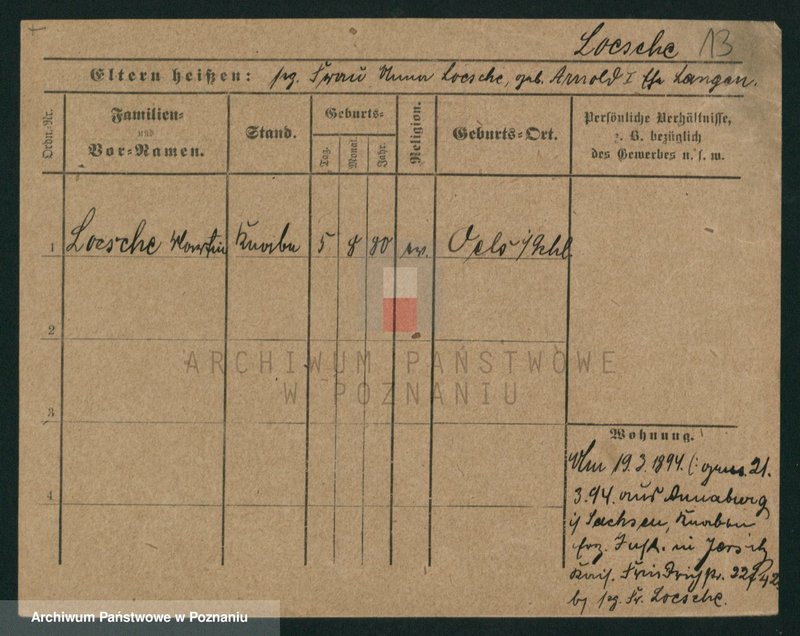 Loesche 13
Eltern heißen: sep. Frau Anna Loesche, geb. Arnold I Ehe Langen.
Ordn.-Nr.
Familien-
und
Vor-Namen.
Stand.
Geburts-
Tag.
Monat.
Jahr.
Religion.
Geburts-Ort.
Persönliche Verhältnisse,
z. B. bezüglich
des Gewerbes u. s. w.
1 Loesche Martin Knabe 5 8 80 ev. Oels i/Schl.
2
3
4
Wohnung.
Am 19.3.1894. (: 21.
3.94. aus Annaburg
i/ Sachsen, Knaben
Erz. Inst. in Jersitz
Kais. Friedrichstr. 22/42
b/ Fr. Loesche.
ARCHIWUM PAŃSTWOWE
W POZNANIU
Archiwum Państwowe w Poznaniu